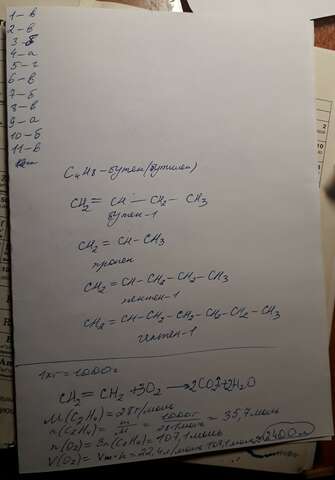 1-в
2-в
3-б
4-а
5-г
6-в
7-б
8-в
9-а
10-б
11-в
C4H8-бутен(бутилен)
CH2=CH-CH2-CH3
бутен-1
CH2=CH-CH3
пропен
CH2=CH-CH2-CH2-CH3
пентен-1
CH2=CH-CH2-CH2-CH2-CH2-CH3
гептен-1
1кг=1000г
CH2=CH2+3O2→2CO2+2H2O
M(C2H4)=28г/моль
n(C2H4)=m/M=1000г/28г/моль=35,7моль
n(O2)=3n(C2H4)=107,1моль
V(O2)=Vm·n=22,4л/моль·107,1моль≈2400л